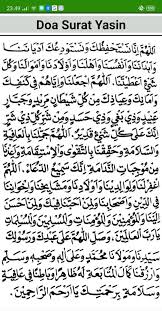 23.49
Doa Surat Yasin
اَللّٰهُمَّ اِنَّا نَسْتَحْفِظُكَ وَنَسْتَوْدِعُكَ اَدْيَانَنَا
وَاَنْفُسَنَا وَاَهْلَنَا وَاَوْلَادَنَا وَاَمْوَالَنَا وَكُلَّ
شَيْءٍ اَعْطَيْتَنَا. اَللّٰهُمَّ اجْعَلْنَا وَاِيَّاهُمْ فِيْ كَنَفِكَ
وَاَمَانِكَ وَعِيَاذِكَ مِنْ كُلِّ شَيْطَانٍ مَرِيْدٍ وَجَبَّارٍ
عَنِيْدٍ وَذِيْ بَغْيٍ وَذِيْ حَسَدٍ وَمِنْ شَرِّ كُلِّ ذِيْ شَرٍّ
اِنَّكَ عَلٰى كُلِّ شَيْءٍ قَدِيْرٌ. اَللّٰهُمَّ جَمِّلْنَا بِالْعَافِيَةِ
وَالسَّلَامَةِ وَحَقِّقْنَا بِالتَّقْوٰى وَالْاِسْتِقَامَةِ وَاَعِذْنَا
مِنْ مُوْجِبَاتِ النَّدَامَةِ اِنَّكَ سَمِيْعُ الدُّعَاءِ. اَللّٰهُمَّ
اغْفِرْ لَنَا وَلِوَالِدِيْنَا وَلِاَوْلَادِنَا وَلِمَشَايِخِنَا وَلِاِخْوَانِنَا
فِي الدِّيْنِ وَلِاَصْحَابِنَا وَلِمَنْ اَحَبَّنَا فِيْكَ وَلِمَنْ اَحْسَنَ
اِلَيْنَا وَلِلْمُؤْمِنِيْنَ وَالْمُؤْمِنَاتِ وَالْمُسْلِمِيْنَ وَالْمُسْلِمَاتِ
يَا رَبَّ الْعَالَمِيْنَ. وَصَلِّ اللّٰهُمَّ عَلٰى عَبْدِكَ وَرَسُوْلِكَ
سَيِّدِنَا وَمَوْلَانَا مُحَمَّدٍ وَعَلٰى اٰلِهِ وَصَحْبِهِ وَسَلِّمْ
وَارْزُقْنَا كَمَالَ الْمُتَابَعَةِ لَهُ ظَاهِرًا وَبَاطِنًا فِيْ عَافِيَةٍ
وَسَلَامَةٍ بِرَحْمَتِكَ يَا اَرْحَمَ الرَّاحِمِيْنَ.